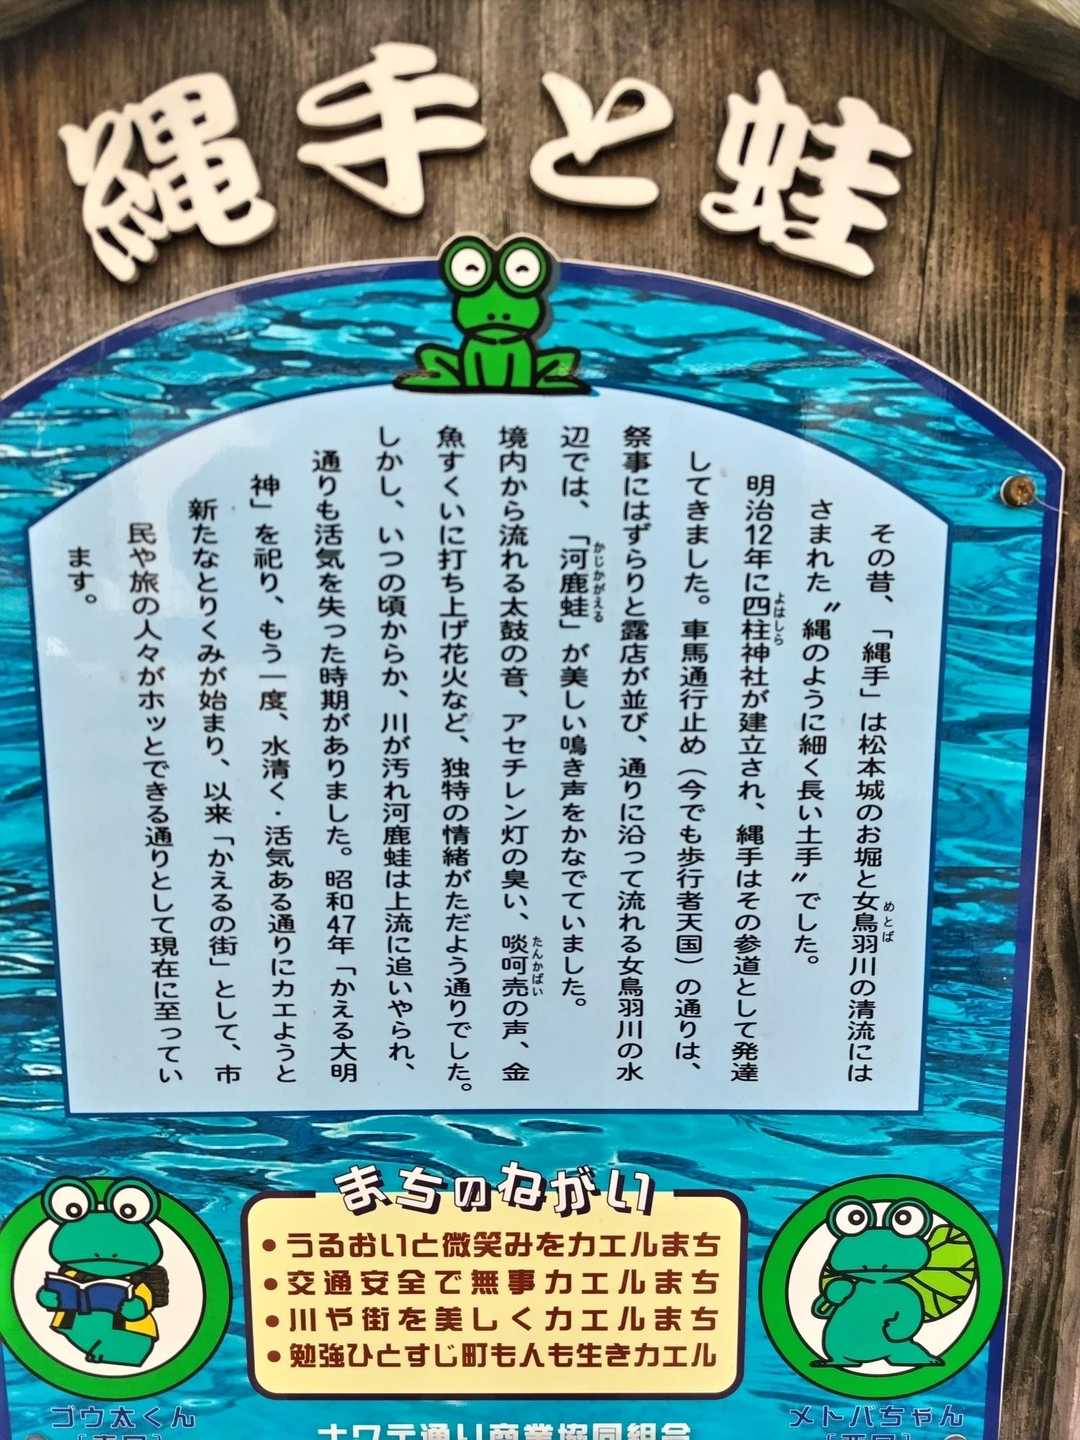 縄手と蛙
その昔、「縄手」は松本城のお堀と女鳥羽川の清流には
めとば
さまれた〝縄のように細く長い土手〟でした。
明治12年に四柱神社が建立され、縄手はその参道として発達
よはしら
してきました。車馬通行止め（今でも歩行者天国）の通りは、
祭事にはずらりと露店が並び、通りに沿って流れる女鳥羽川の水
辺では、「河鹿蛙」が美しい鳴き声をかなでていました。
かじかがえる
境内から流れる太鼓の音、アセチレン灯の臭い、啖呵売の声、金
たんかばい
魚すくいに打ち上げ花火など、独特の情緒がただよう通りでした。
しかし、いつの頃からか、川が汚れ河鹿蛙は上流に追いやられ、
通りも活気を失った時期がありました。昭和47年「かえる大明
神」を祀り、もう一度、水清く・活気ある通りにカエようと
新たなとりくみが始まり、以来「かえるの街」として、市
民や旅の人々がホッとできる通りとして現在に至ってい
ます。
まちのねがい
●うるおいと微笑みをカエルまち
●交通安全で無事カエルまち
●川や街を美しくカエルまち
●勉強ひとすじ町も人も生きカエル
ゴウ太くん
メトバちゃん
ナワテ通り商業協同組合